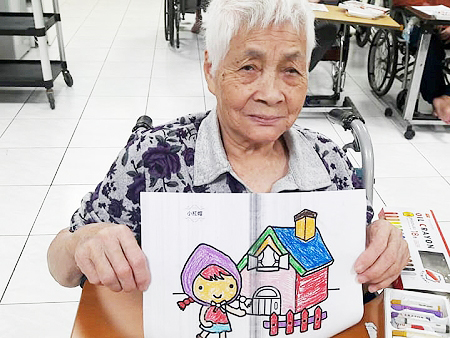 小紅帽
OIL CRAYON